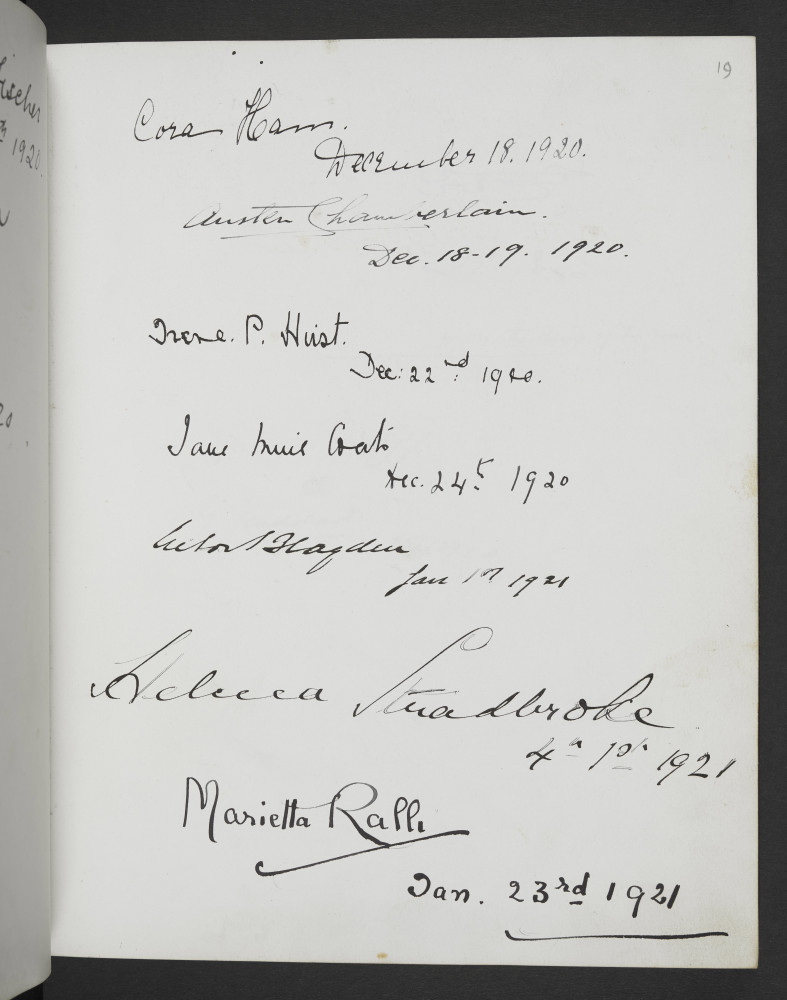 19
Cora Ham.
December 18. 1920.
Austen Chamberlain.
Dec. 18-19. 1920.
Irene. P. Hirst.
Dec: 22nd: 1920.
Jane Muir Coats
Dec. 24th 1920
Jan 1st 1921
Helena Stradbroke
4th 1st 1921
Marietta Ralli
Jan. 23rd 1921
1920.